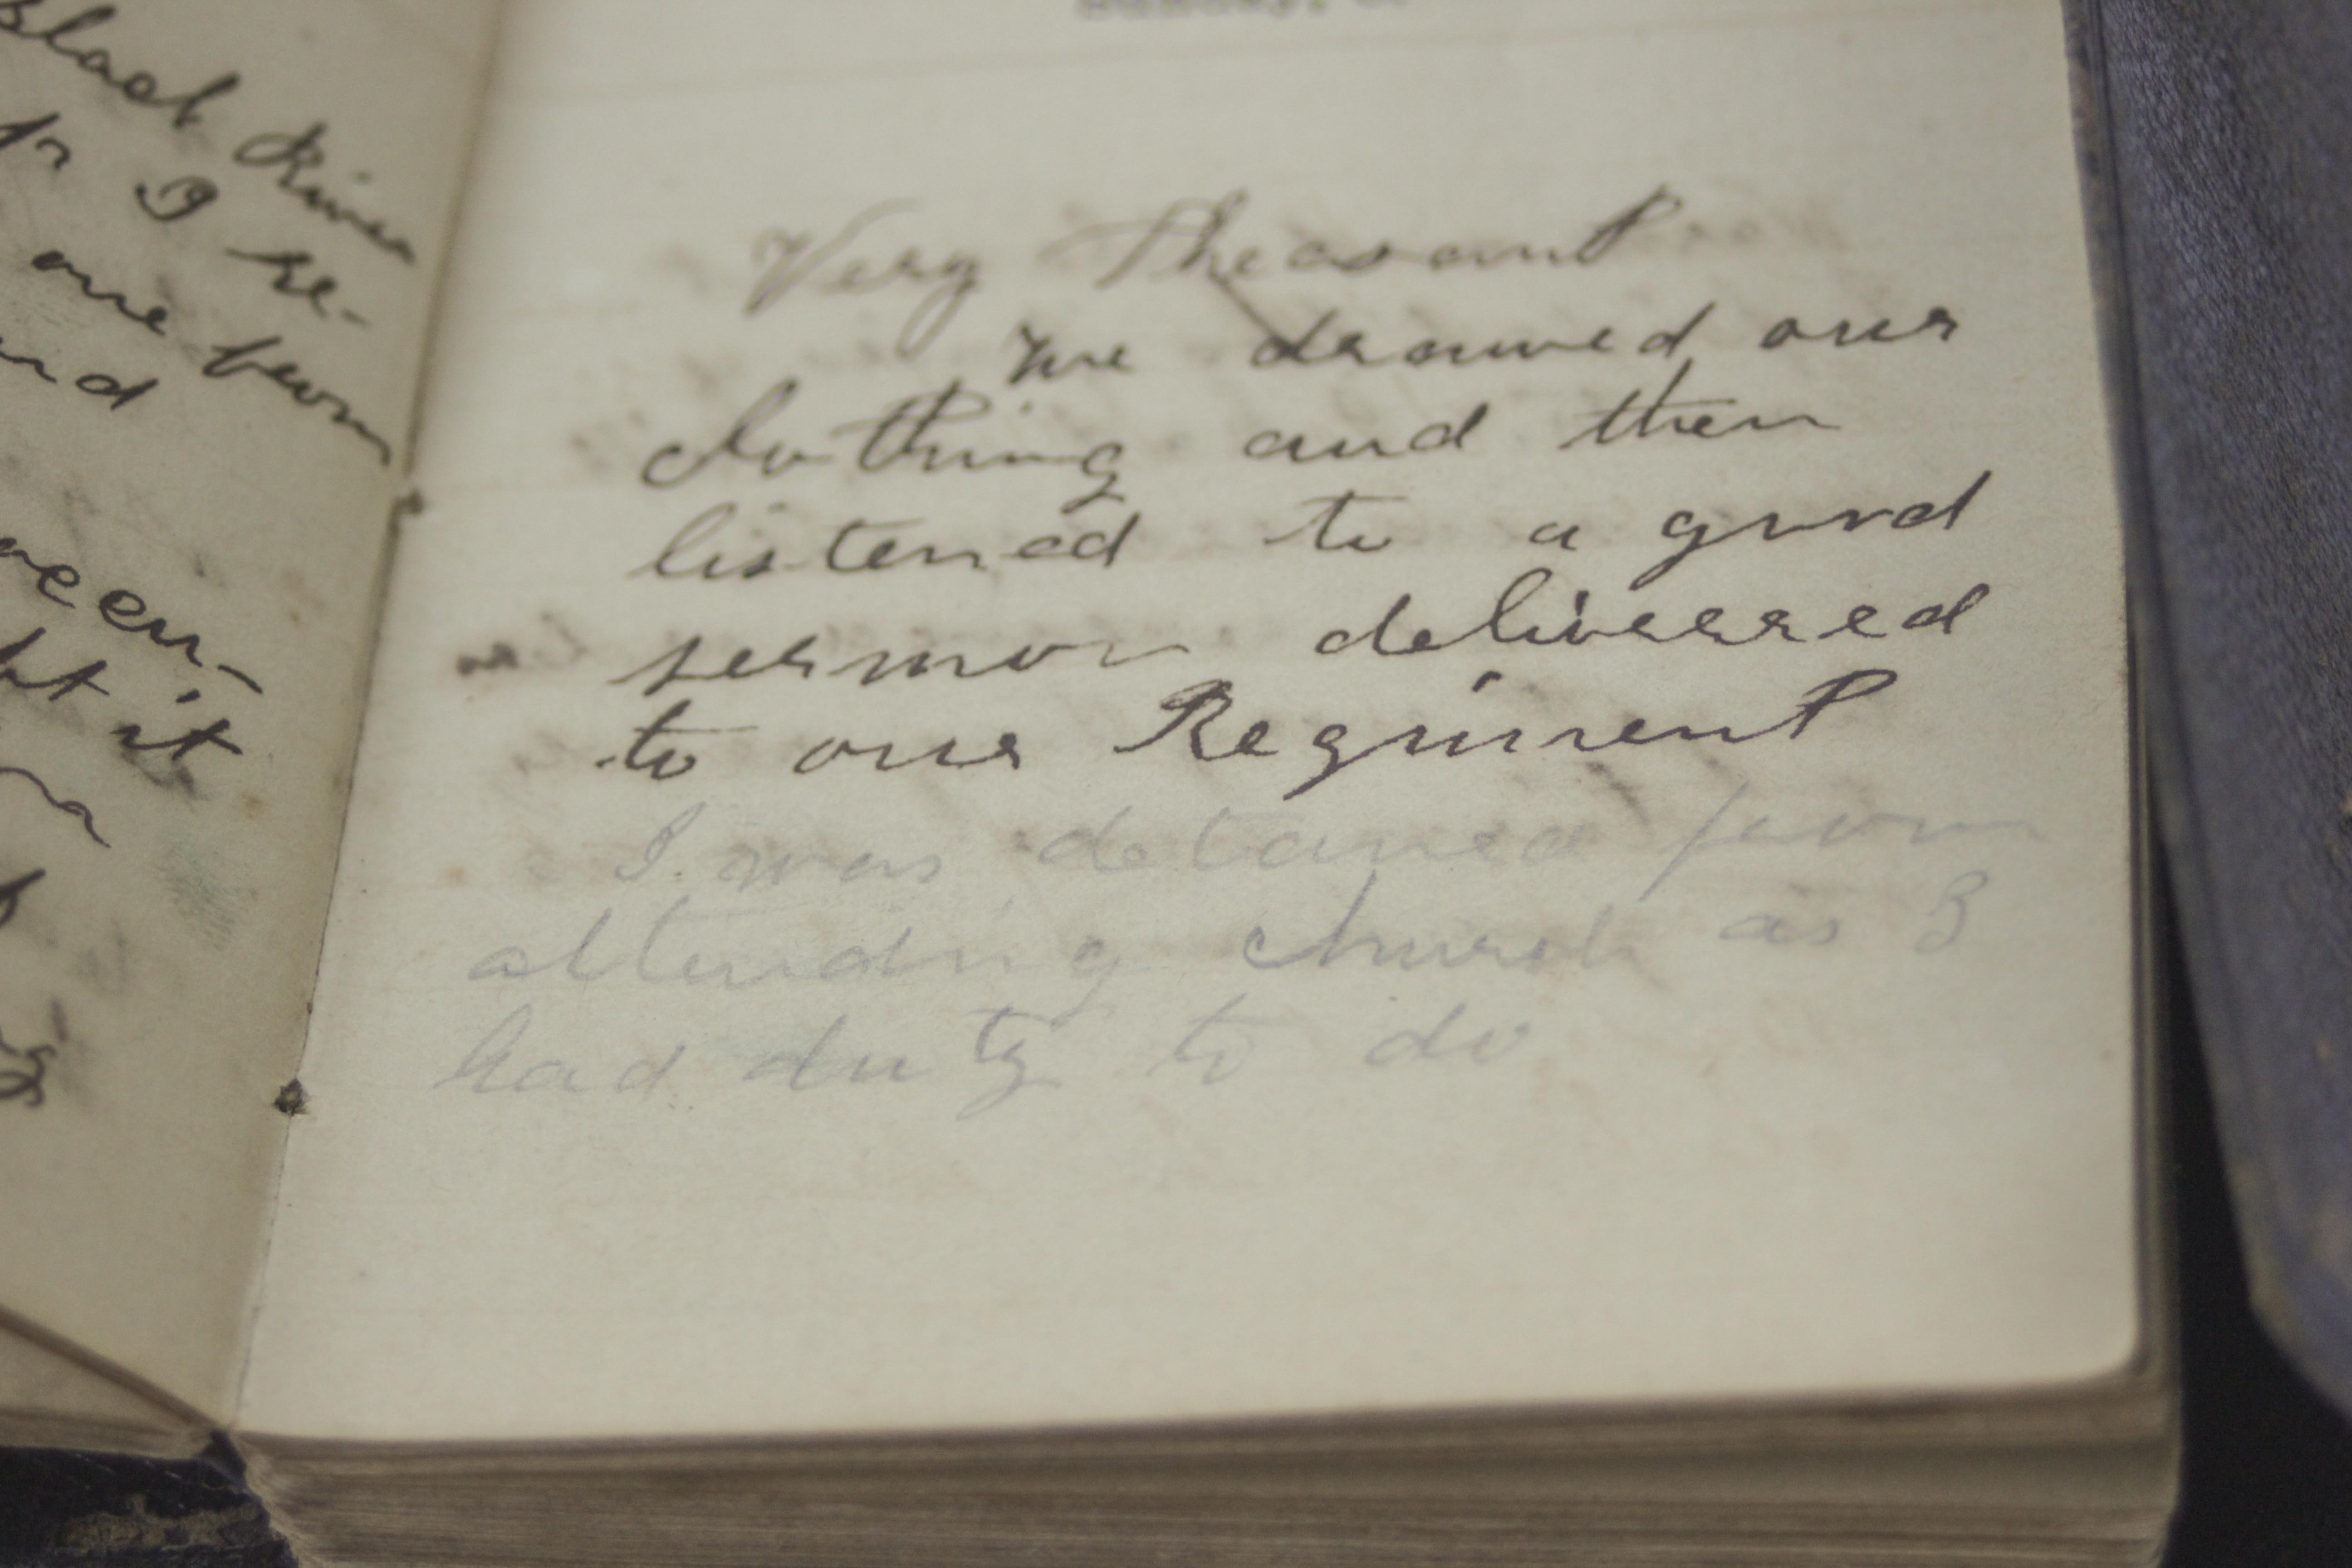 Black River
I re-
one from
and
ween-
ht it
Sunday,
Very Pleasant
we drawed our
clothing and then
listened to a good
sermon deliverred
to our Regiment
I was detaned from
attending church as I
had duty to do